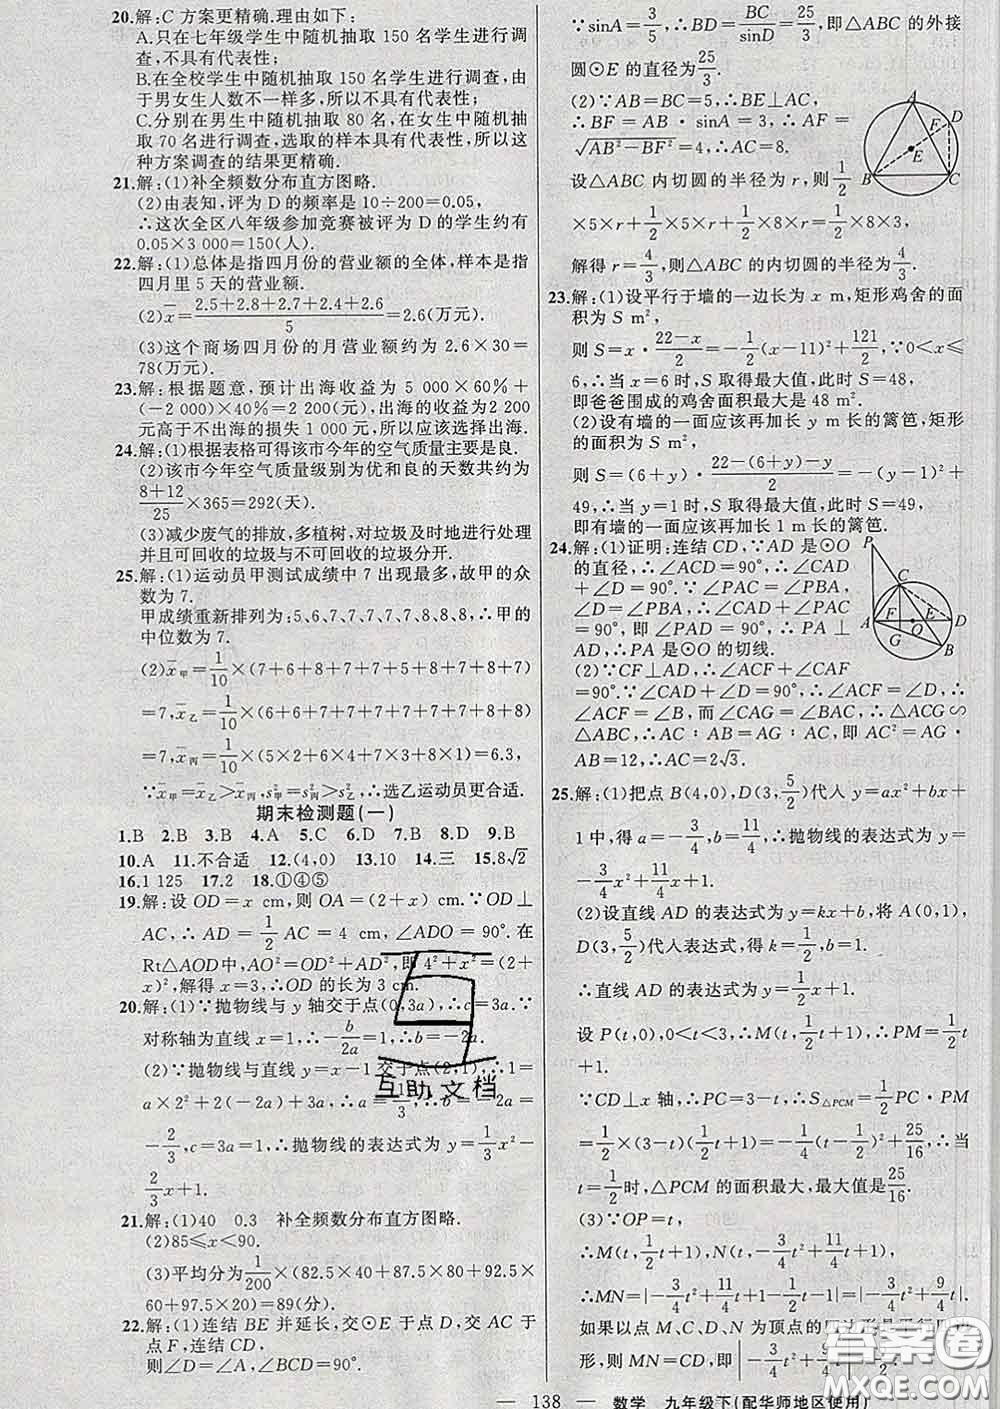 20.解:C 方案更精确.理由如下:
A.只在七年级学生中随机抽取 150 名学生进行调
查,不具有代表性;
B.在全校学生中随机抽取 150 名学生进行调查,由
于男女生人数不一样多,所以不具有代表性;
C.分别在男生中随机抽取 80 名,在女生中随机抽
取 70 名进行调查,选取的样本具有代表性,所以这
种方案调查的结果更精确.
21.解:(1)补全频数分布直方图略.
(2)由表知,评为 D 的频率是 10÷200=0.05,
∴这次全区八年级参加竞赛被评为 D 的学生约有
0.05×3 000=150(人).
22.解:(1)总体是指四月份的营业额的全体,样本是指
四月里 5 天的营业额.
(2)x̄=(2.5+2.8+2.7+2.4+2.6)/5=2.6(万元).
(3)这个商场四月份的月营业额约为 2.6×30=
78(万元).
23.解:根据题意,预计出海收益为 5 000×60%+
(-2 000)×40%=2 200(元),出海的收益为 2 200
元高于不出海的损失 1 000 元,所以应该选择出海.
24.解:(1)根据表格可得该市今年的空气质量主要是良.
(2)该市今年空气质量级别为优和良的天数共约为
(8+12)/25×365=292(天).
(3)减少废气的排放,多植树,对垃圾及时地进行处理
并且可回收的垃圾与不可回收的垃圾分开.
25.解:(1)运动员甲测试成绩中 7 出现最多,故甲的众
数为 7.
甲成绩重新排列为:5,6,7,7,7,7,7,8,8,8,∴甲的
中位数为 7.
(2)x̄甲=1/10×(7+6+8+7+7+5+8+7+8+7)
=7,x̄乙=1/10×(6+6+7+7+7+7+7+7+8+8)
=7,x̄丙=1/10×(5×2+6×4+7×3+8×1)=6.3,
∵x̄甲=x̄乙>x̄丙,s²甲>s²丙>s²乙,∴选乙运动员更合适.
期末检测题(一)
1.B 2.B 3.B 4.A 5.C 6.D 7.B 8.D 9.B
10.A 11.不合适 12.(4,0) 13.10 14.三 15.8√2
16.1 125 17.2 18.①④⑤
19.解:设 OD=x cm,则 OA=(2+x) cm.∵OD⊥
AC,∴AD=1/2 AC=4 cm,∠ADO=90°.在
Rt△AOD中,AO²=OD²+AD²,即 4²+x²=(2+
x)²,解得 x=3,∴OD 的长为 3 cm.
20.解:(1)∵抛物线与 y 轴交于点(0,3a),∴c=3a.∵
对称轴为直线 x=1,∴-b/2a=1,∴b=-2a.
(2)∵抛物线与直线 y=x-1 交于点(2,1),∴1=
a×2²+2(-2a)+3a,∴a=1/3,∴b=-2a=
-2/3,c=3a=1,∴抛物线的表达式为 y=1/3x²-
2/3x+1.
21.解:(1)40 0.3 补全频数分布直方图略.
(2)85≤x<90.
(3)平均分为1/200×(82.5×40+87.5×80+92.5×
60+97.5×20)=89(分).
22.解:(1)连结 BE 并延长,交⊙E 于点 D,交 AC 于
点 F,连结CD,
则∠D=∠A,∠BCD=90°.
∵sinA=3/5,∴BD=BC/sinD=25/3,即△ABC 的外接
圆⊙E 的直径为25/3.
(2)∵AB=BC=5,∴BE⊥AC,
∴BF=AB·sinA=3,∴AF=
√(AB²-BF²)=4,∴AC=8.
设△ABC 内切圆的半径为 r,则1/2
×5×r+1/2×5×r+1/2×8×r=1/2×8×3,
解得 r=4/3,则△ABC 的内切圆的半径为4/3.
23.解:(1)设平行于墙的一边长为 x m,矩形鸡舍的面
积为 S m²,
则 S=x·(22-x)/2=-1/2(x-11)²+121/2,∵0<x≤
6,∴当 x=6 时,S 取得最大值,此时 S=48,
即爸爸围成的鸡舍面积最大是 48 m².
(2)设有墙的一面应该再加长 y m 长的篱笆,矩形
的面积为 S m²,
则 S=(6+y)·(22-(6+y)-y)/2=-(y-1)²+
49,∴当 y=1 时,S 取得最大值,此时 S=49,
即有墙的一面应该再加长 1 m 长的篱笆.
24.解:(1)证明:连结 CD,∵AD 是⊙O
的直径,∴∠ACD=90°,∴∠CAD
+∠D=90°.∵∠PAC=∠PBA,
∠D=∠PBA,∴∠CAD+∠PAC
=90°,即∠PAD=90°,∴PA⊥
AD,∴PA 是⊙O 的切线.
(2)∵CF⊥AD,∴∠ACF+∠CAF
=90°.∵∠CAD+∠D=90°,∴∠ACF=∠D,∴
∠ACF=∠B,而∠CAG=∠BAC,∴△ACG∽
△ABC,∴AC∶AB=AG∶AC,即 AC²=AG·
AB=12,∴AC=2√3.
25.解:(1)把点 B(4,0),D(3,5/2)代入 y=ax²+bx+
1 中,得 a=-3/4,b=11/4,∴抛物线的表达式为 y=
-3/4x²+11/4x+1.
(2)设直线 AD 的表达式为 y=kx+b,将 A(0,1),
D(3,5/2)代入表达式,得 k=1/2,b=1.
∴直线 AD 的表达式为 y=1/2x+1.
设 P(t,0),0<t<3,∴M(t,1/2t+1),∴PM=1/2t
+1.
∵CD⊥x 轴,∴PC=3-t,∴S△PCM=1/2PC·PM=
1/2×(3-t)(1/2t+1)=-1/4(t-1/2)²+25/16,∴当
t=1/2时,△PCM 的面积最大,最大值是25/16.
(3)∵OP=t,
∴M(t,1/2t+1),N(t,-3/4t²+11/4t+1),
∴MN=|-3/4t²+11/4t+1-1/2t-1|=|-3/4t²+9/4t|.
如果以点 M、C、D、N 为顶点的四边形是平行四边
形,则 MN=CD,即|-3/4t²+9/4t|=5/2.
A
F
D
E
B
C
P
C
A
F
O
E
D
G
B
互助文档
答案圈
MXQE.COM
— 138 — 数学 九年级下(配华师地区使用)